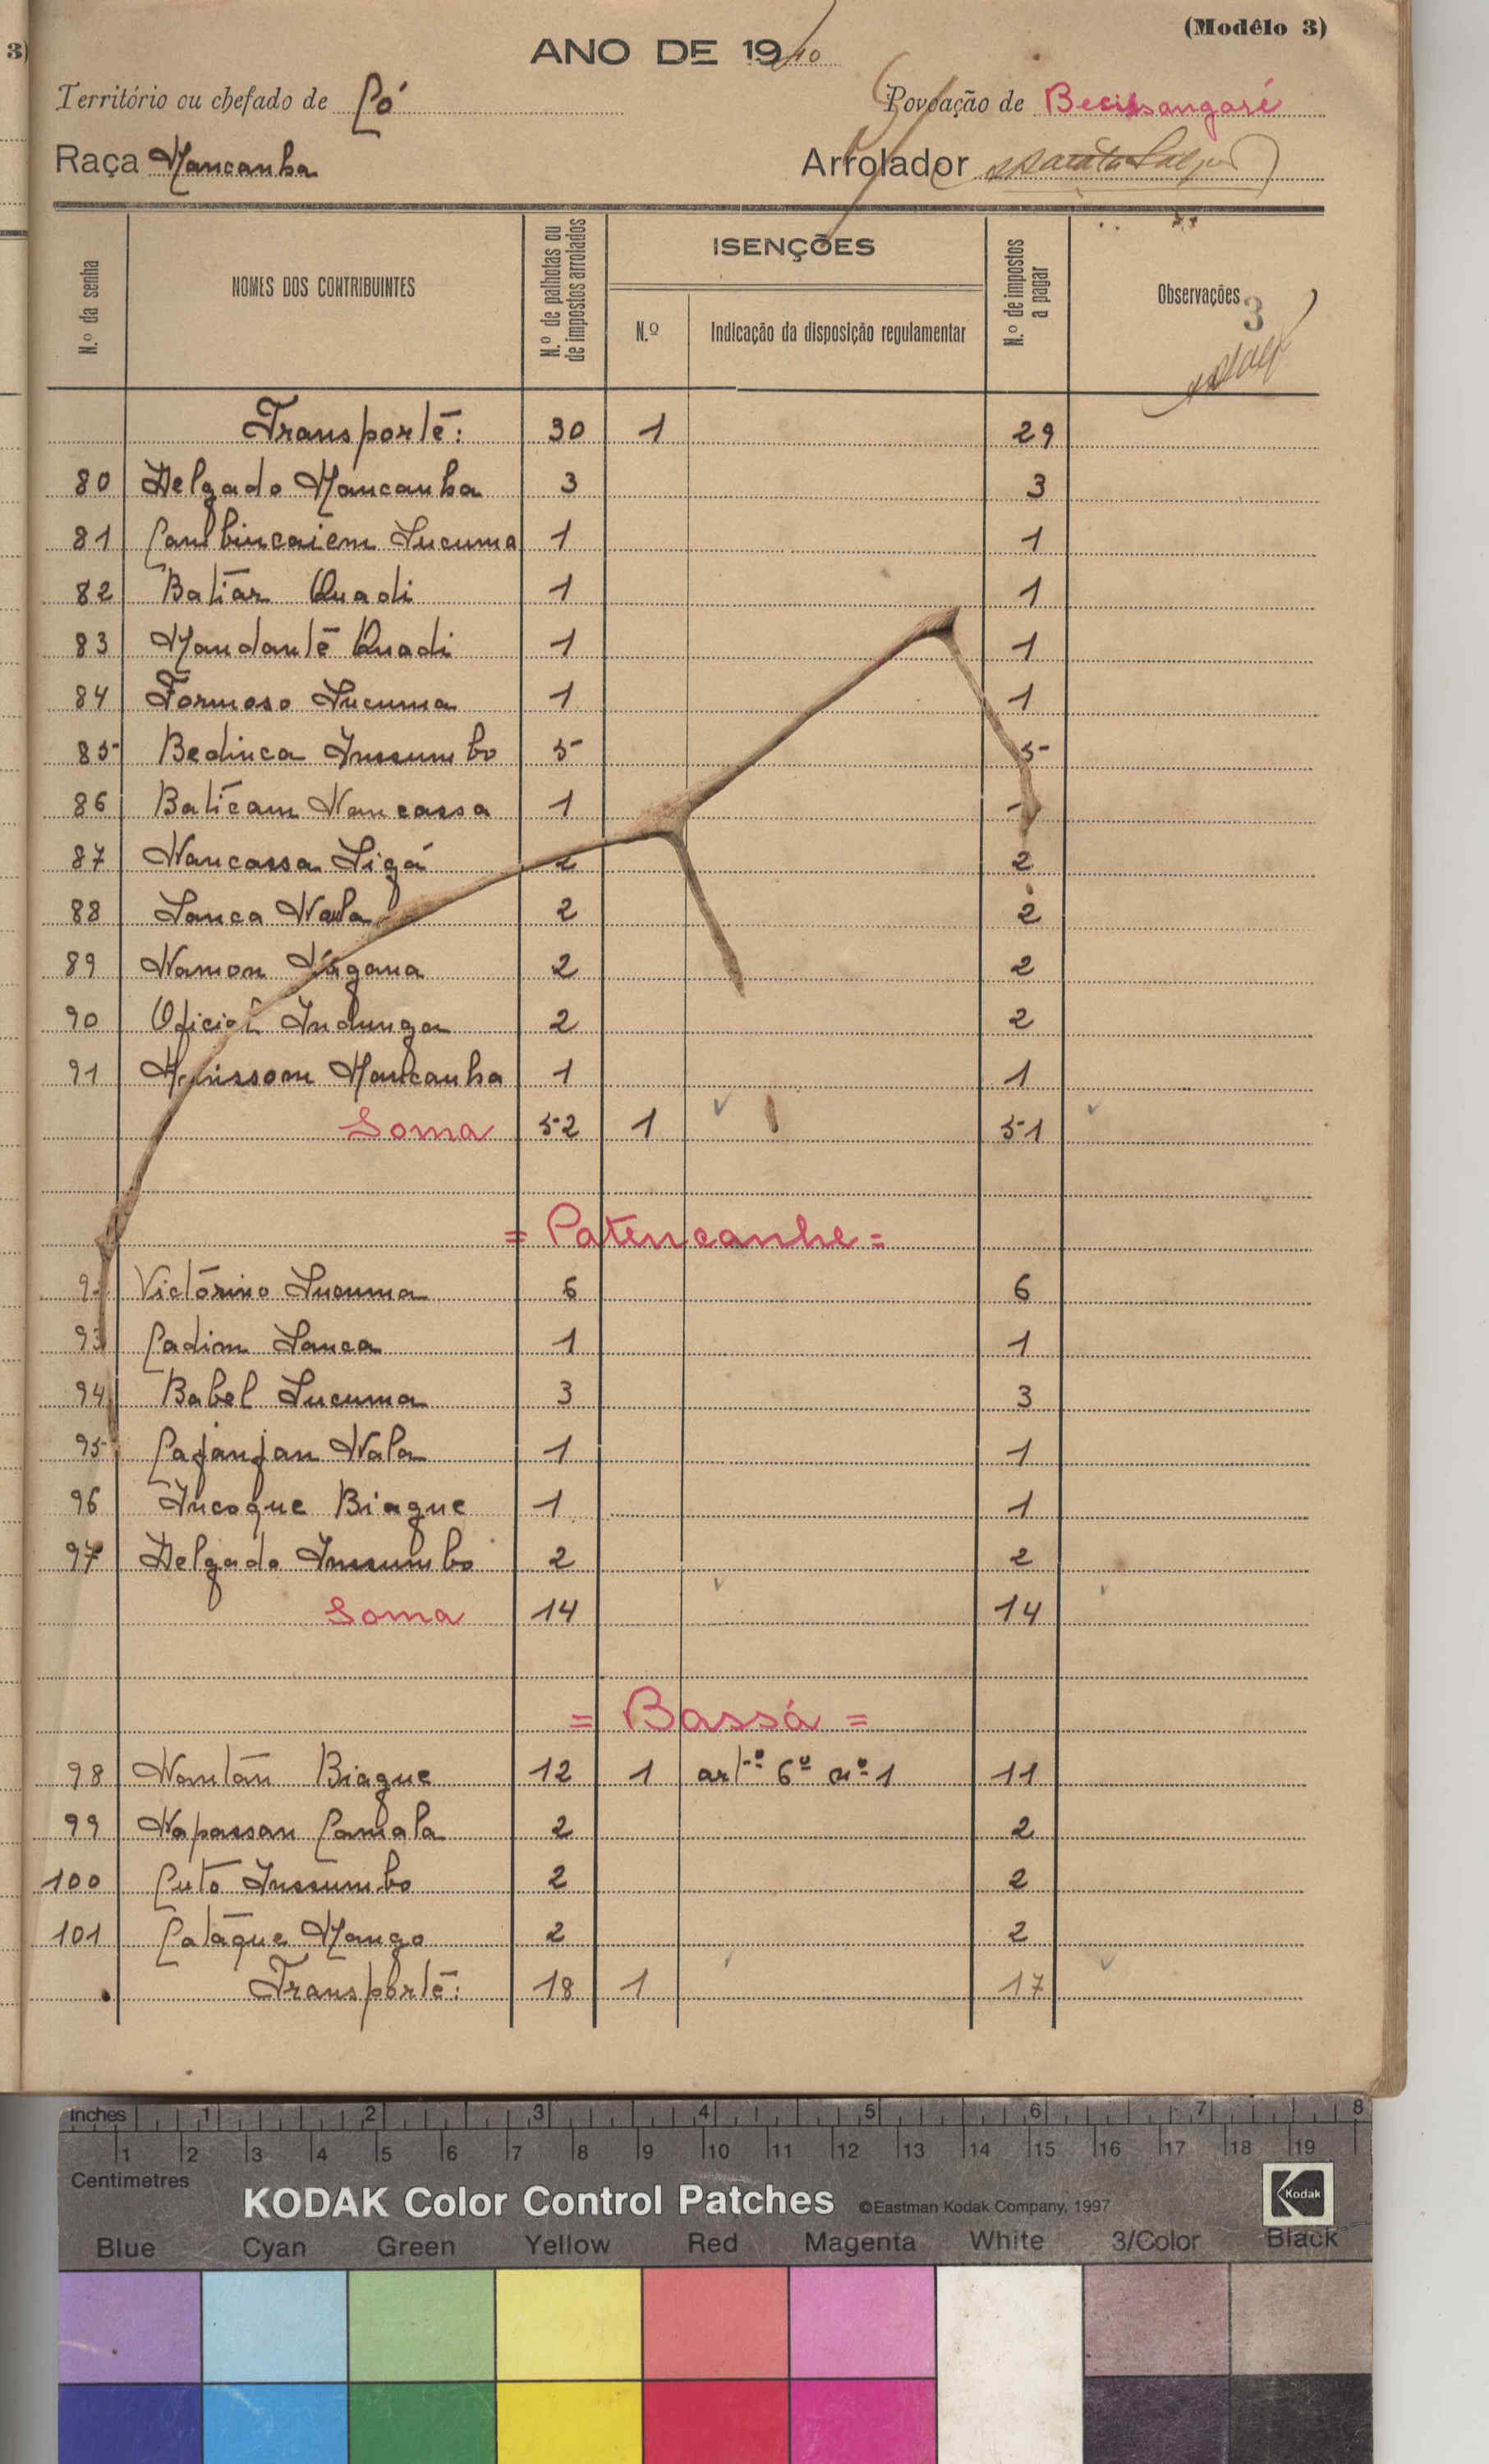 3)
(Modêlo 3)
ANO DE 1940
Território ou chefado de Có
Povoação de
Raça Mancanha
Arrolador
N.º da senha
NOMES DOS CONTRIBUINTES
N.º de palhotas ou de impostos arrolados
ISENÇÕES
N.º
Indicação da disposição regulamentar
N.º de impostos a pagar
Observações
3
Transporte: 30 1 29
80 Delgado Mancanha 3 3
81 Lucuma 1 1
82 Batiar Quadi 1 1
83 Mandante Quadi 1 1
84 Formoso Lucuma 1 1
85 Bedinca Inssumbo 5 5
86 Baticam Nancassa 1
87 Nancassa Ligá 2 2
88 Lanca Nala 2 2
89 Namon 2 2
90 Oficial Indunga 2 2
91 Mancanha 1 1
Soma 52 1 51
= Patencanhe =
9 Victórino Lucuma 6 6
93 Cadim Lanca 1 1
94 Babel Lucuma 3 3
95 Cajanjan Nala 1 1
96 Incoque Biague 1 1
97 Delgado Inssumbo 2 2
Soma 14 14
= Bassá =
98 Nantan Biague 12 1 artº 6º nº 1 11
99 Napassan Camala 2 2
100 Cuto Inssumbo 2 2
101 Cataque Mango 2 2
Transporte: 18 1 17
Inches 1 2 3 4 5 6 7 8
1 2 3 4 5 6 7 8 9 10 11 12 13 14 15 16 17 18 19
Centimetres
KODAK Color Control Patches ©Eastman Kodak Company, 1997 Kodak
Blue Cyan Green Yellow Red Magenta White 3/Color Black